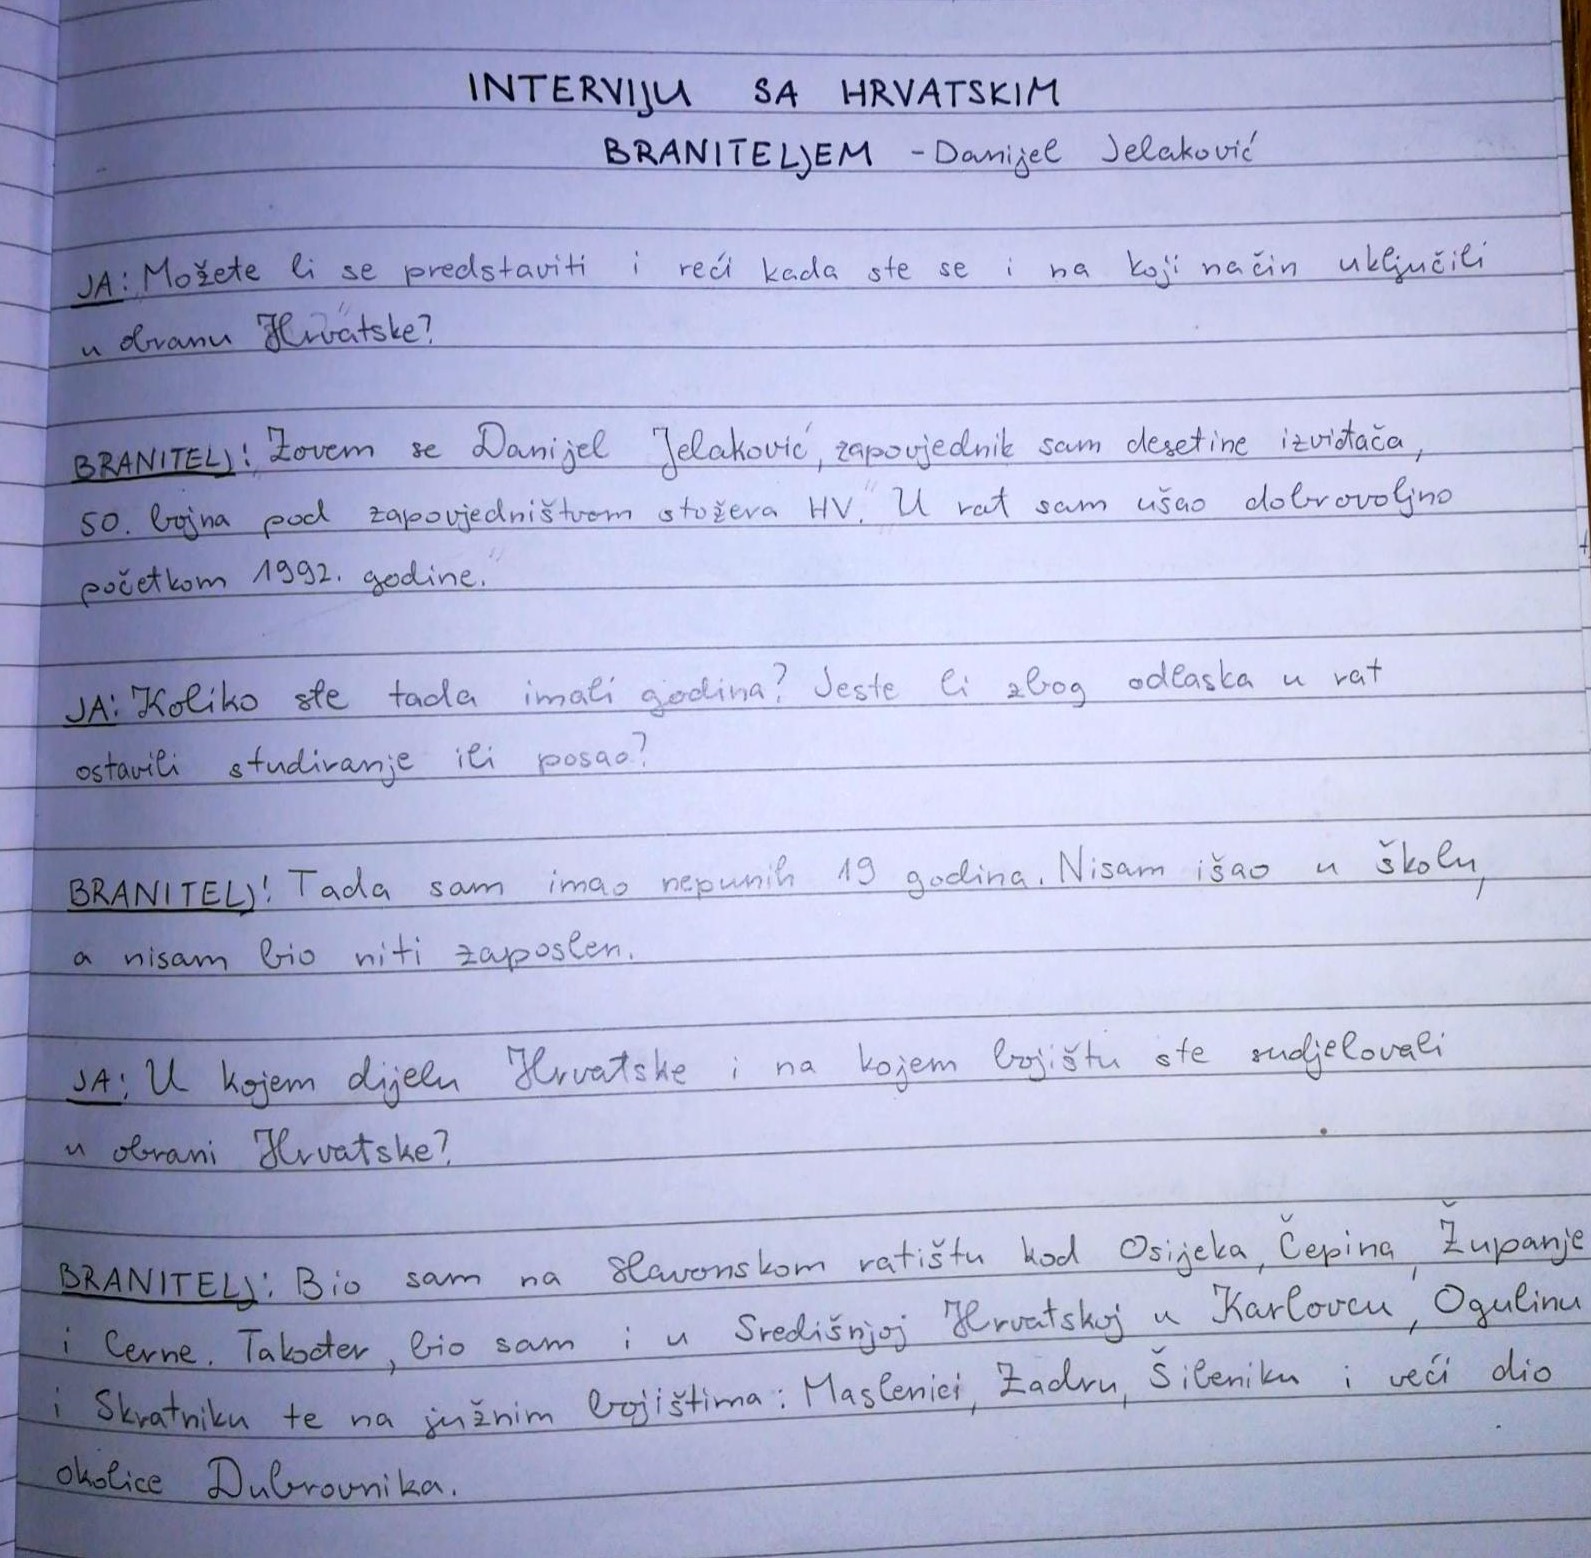 INTERVIJU SA HRVATSKIM
BRANITELJEM - Danijel Jelaković
JA: Možete li se predstaviti i reći kada ste se i na koji način uključili
u obranu Hrvatske?
BRANITELJ: Zovem se Danijel Jelaković, zapovjednik sam desetine izviđača,
50. bojna pod zapovjedništvom stožera HV. U rat sam ušao dobrovoljno
početkom 1992. godine.
JA: Koliko ste tada imali godina? Jeste li zbog odlaska u rat
ostavili studiranje ili posao?
BRANITELJ: Tada sam imao nepunih 19 godina. Nisam išao u školu,
a nisam bio niti zaposlen.
JA: U kojem dijelu Hrvatske i na kojem bojištu ste sudjelovali
u obrani Hrvatske?
BRANITELJ: Bio sam na slavonskom ratištu kod Osijeka, Čepina, Županje
i Cerne. Također, bio sam i u Središnjoj Hrvatskoj u Karlovcu, Ogulinu
i Skratniku te na južnim bojištima: Maslenici, Zadru, Šibeniku i veći dio
okolice Dubrovnika.